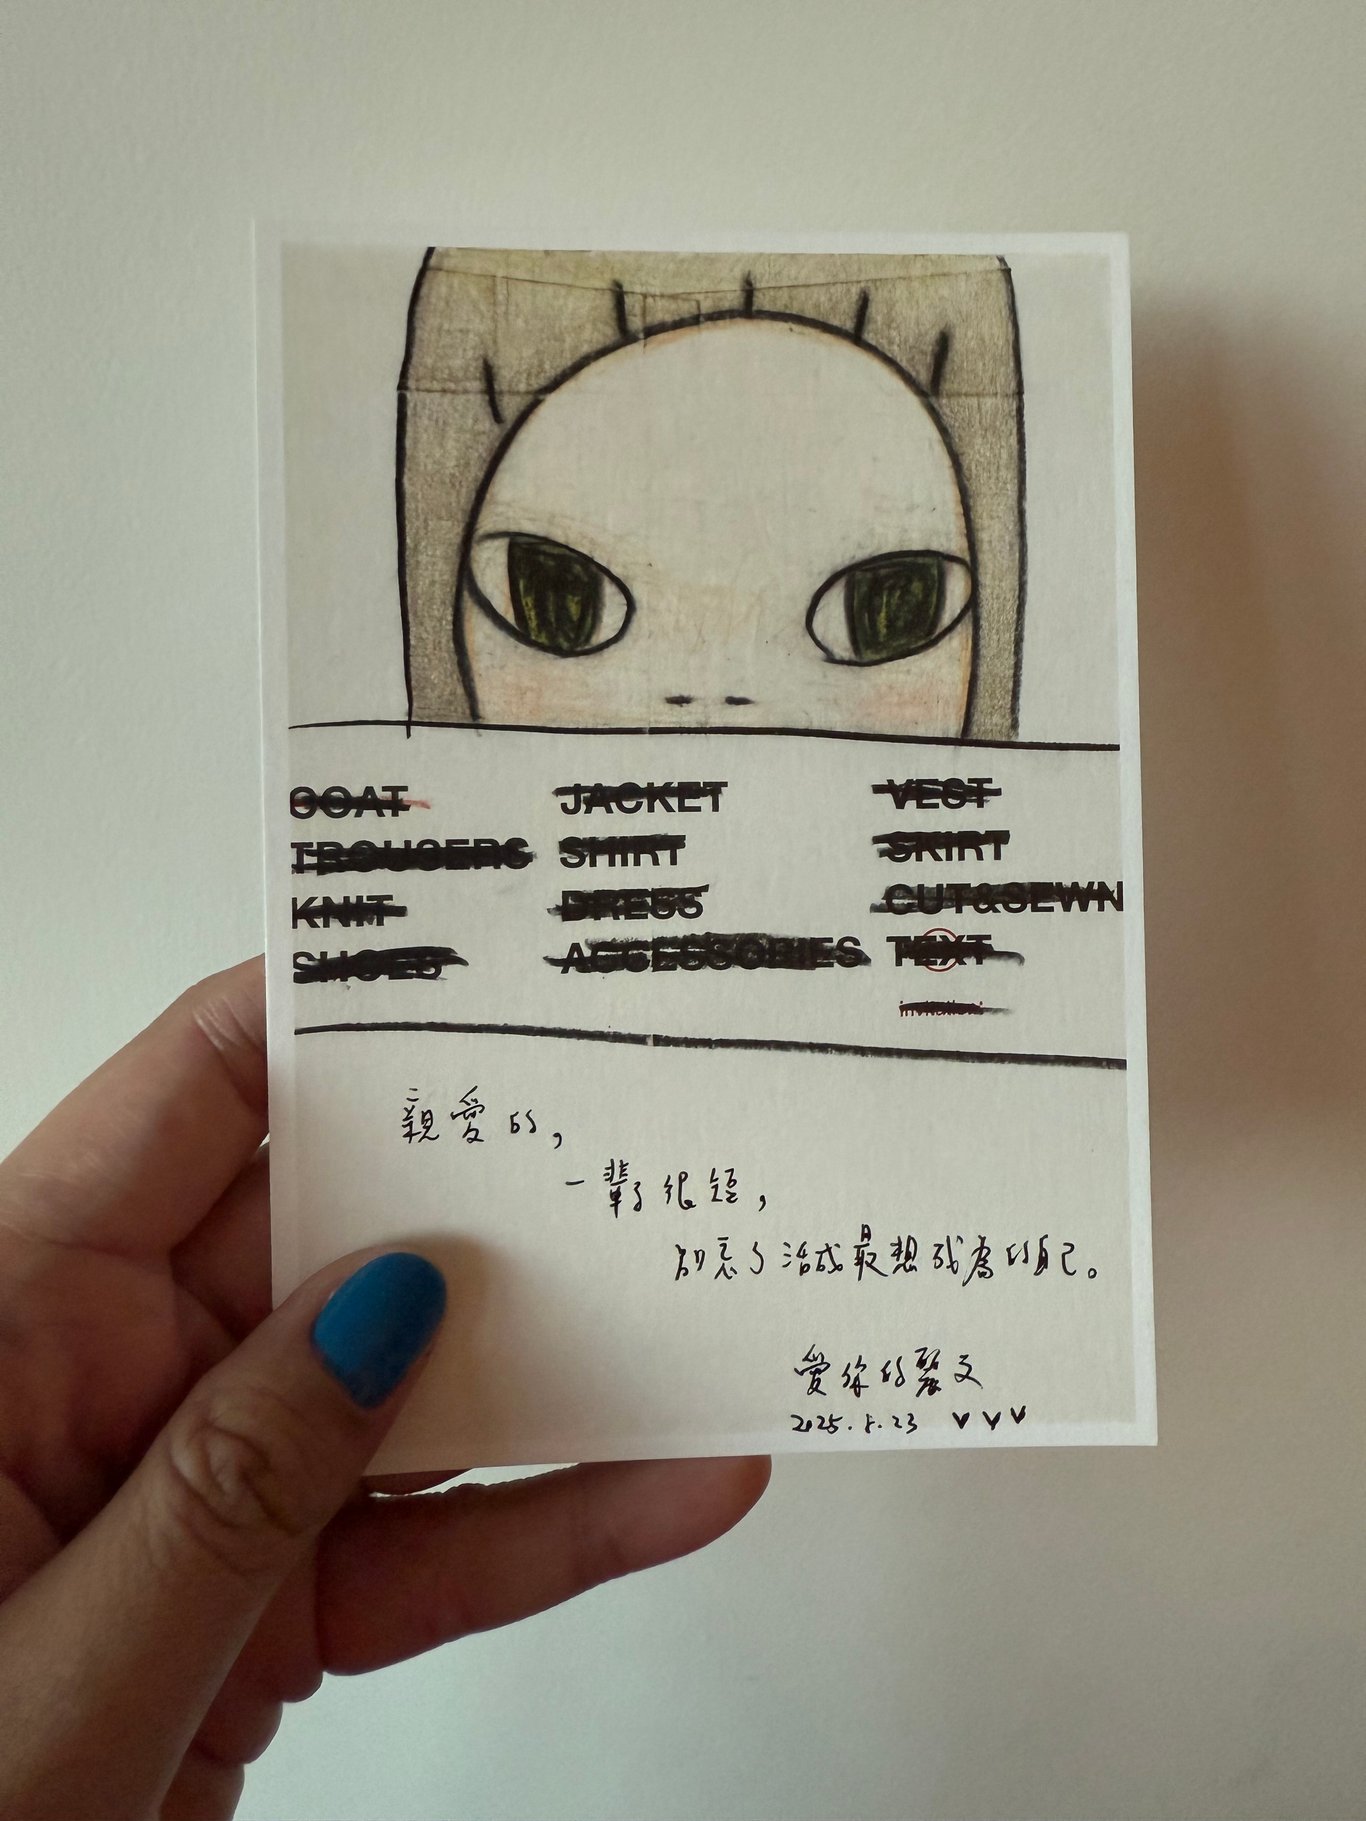 COAT JACKET VEST
TROUSERS SHIRT SKIRT
KNIT DRESS CUT&SEWN
SHOES ACCESSORIES TEXT
親愛的，
一輩子很短，
別忘了活成最想成為的自己。
愛你的麗文
2025.8.23 ♥♥♥